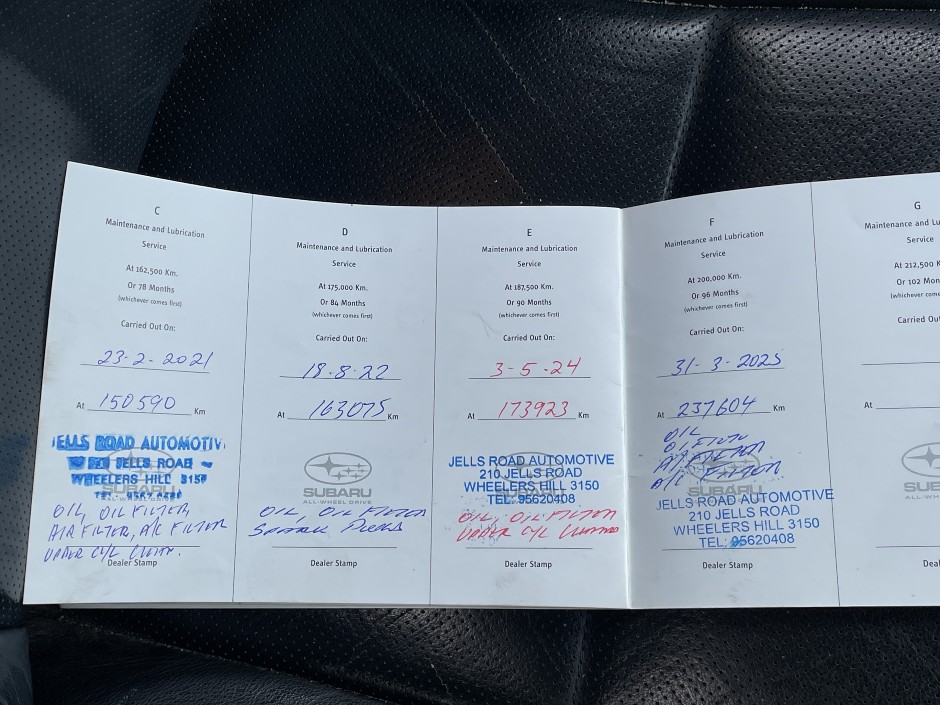 C
Maintenance and Lubrication
Service
At 162,500 Km.
Or 78 Months
(whichever comes first)
Carried Out On:
23-2-2021
At 150590 Km
JELLS ROAD AUTOMOTIV
JELLS ROAD
WHEELERS HILL 315
OIL, OIL FILTER,
AIR FILTER, A/C FILTER
UPPER CYL CLEAN.
Dealer Stamp
D
Maintenance and Lubrication
Service
At 175,000 Km.
Or 84 Months
(whichever comes first)
Carried Out On:
18-8-22
At 163075 Km
SUBARU
ALL-WHEEL DRIVE
OIL, OIL FILTER
SPARK PLUGS
Dealer Stamp
E
Maintenance and Lubrication
Service
At 187,500 Km.
Or 90 Months
(whichever comes first)
Carried Out On:
3-5-24
At 173923 Km
JELLS ROAD AUTOMOTIVE
210 JELLS ROAD
WHEELERS HILL 3150
TEL: 95620408
OIL, OIL FILTER
UPPER CYL
Dealer Stamp
F
Maintenance and Lubrication
Service
At 200,000 Km.
Or 96 Months
(whichever comes first)
Carried Out On:
31-3-2025
At 237604 Km
OIL
O.FILTER
AIR FILTER
A/C FILTER
JELLS ROAD AUTOMOTIVE
210 JELLS ROAD
WHEELERS HILL 3150
TEL: 95620408
Dealer Stamp
G
Maintenance and Lu
Service
At 212,500 K
Or 102 Mon
(whichever comes
Carried Ou
At
SUB
ALL-WHE
Deal